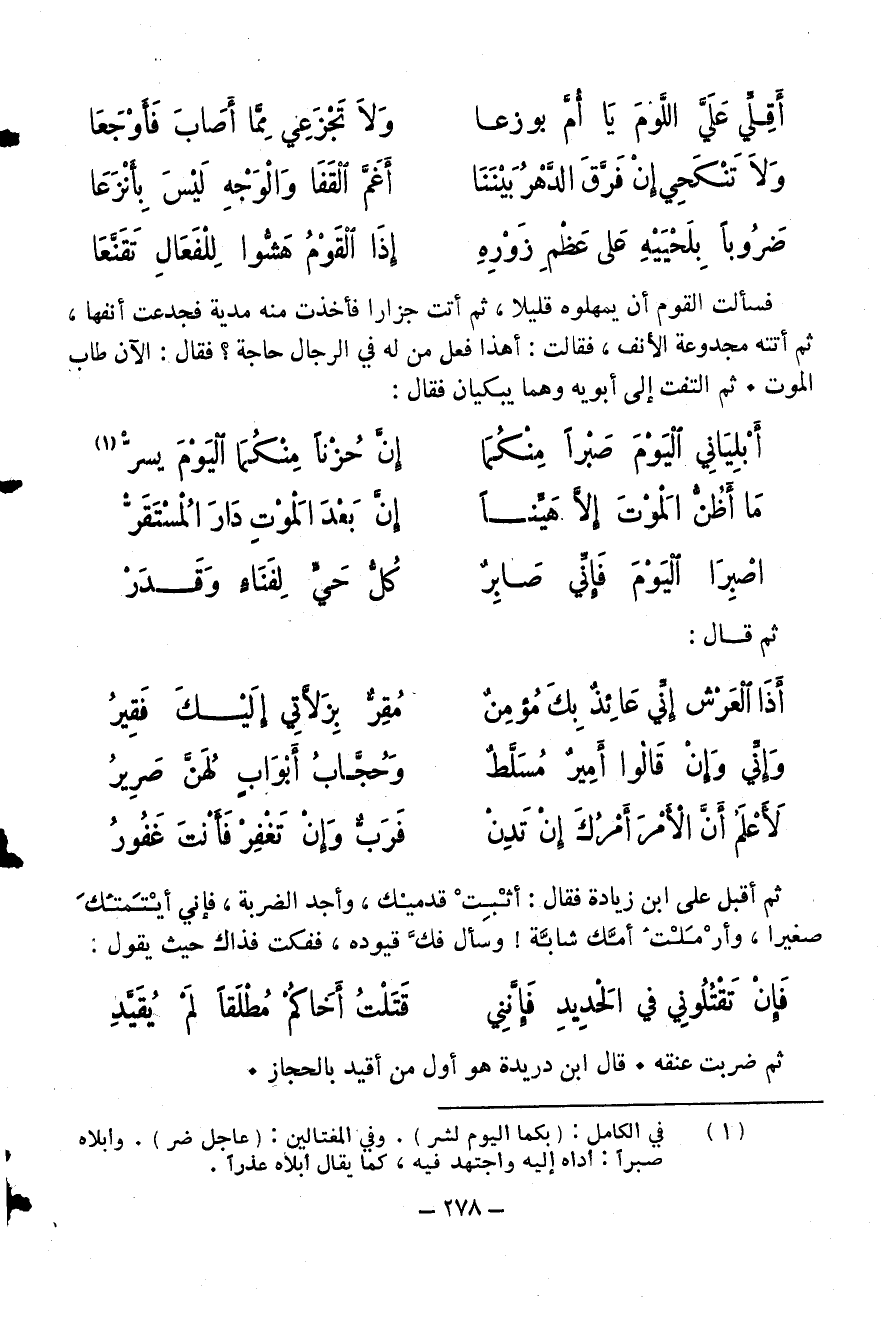 أَقِلِّي عَلَيَّ اللَّوْمَ يَا أُمَّ بوزعـا وَلاَ تَجْزَعِي مِمَّا أَصَابَ فَأَوْجَعَا
وَلاَ تَنْكَحِي إِنْ فَرَّقَ الدَّهْرُ بَيْنَنَا أَغَمَّ ٱلْقَفَا وَالْوَجْهِ لَيْسَ بِأَنْزَعَا
ضَرُوباً بِلَحْيَيْهِ عَلى عَظْمِ زَوْرِهِ إِذَا ٱلْقَوْمُ هَشُّوا لِلْفَعَالِ تَقَنَّعَا
فسألت القوم أن يمهلوه قليلا ، ثم أتت جزارا فأخذت منه مدية فجدعت أنفها ،
ثم أتته مجدوعة الأنف ، فقالت : أهذا فعل من له في الرجال حاجة ؟ فقال : الآن طاب
الموت • ثم التفت إلى أبويه وهما يبكيان فقال :
أَبْلِيَانِي ٱلْيَوْمَ صَبْراً مِنْكُمَا إِنَّ حُزْناً مِنْكُمَا ٱلْيَوْمَ يسرّْ (١)
مَا أَظُنُّ الْمَوْتَ إِلاَّ هَيِّنـــاً إِنَّ بَعْدَ الْمَوْتِ دَارَ الْمُسْتَقَرّْ
اصْبِرَا ٱلْيَوْمَ فَإِنِّي صَـابِرٌ كُلُّ حَيٍّ لِفَنَاءٍ وَقَـــدَرْ
ثم قــال :
أَذَا ٱلْعَرْشِ إِنِّي عَائِذٌ بِكَ مُؤمِنٌ مُقِرٌّ بِزَلاَّتِي إِلَيْـــكَ فَقِيرُ
وَإِنِّي وَإِنْ قَالُوا أَمِيرٌ مُسَلَّطٌ وَحُجَّـابُ أَبْوَابٍ لَهُنَّ صَرِيرُ
لَأَعْلَمُ أَنَّ الْأَمْرَ أَمْرُكَ إِنْ تَدِنْ فَرَبٌّ وَإِنْ تَغْفِرْ فَأَنْتَ غَفُورُ
ثم أقبل على ابن زيادة فقال : أثْبِتْ قدميك ، وأجد الضربة ، فإني أيْتَمتُكَ
صغيرا ، وأرْمَلْتُ أمَّك شابَّة ! وسأل فكَّ قيوده ، ففكت فذاك حيث يقول :
فَإِنْ تَقْتُلُونِي في الْحَدِيدِ فَإِنَّنِي قَتَلْتُ أَخَاكُمْ مُطْلَقاً لَمْ يُقَيَّدِ
ثم ضربت عنقه • قال ابن دريدة هو أول من أقيد بالحجاز •
(١) في الكامل : ( بكما اليوم لشر ) . وفي المغتالين : ( عاجل ضر ) . وأبلاه
صبراً : أداه إليه واجتهد فيه ، كما يقال أبلاه عذراً .
– ٢٧٨ –